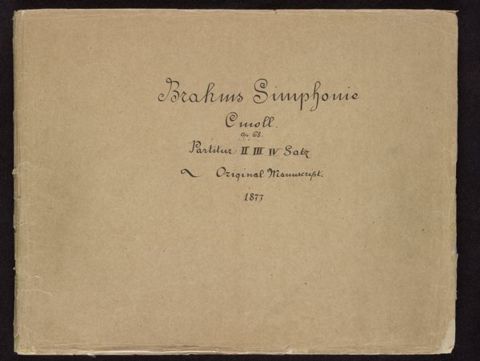 Brahms Simphonie
C moll.
op. 68.
Partitur II III IV Satz
Original Manuscript.
1877